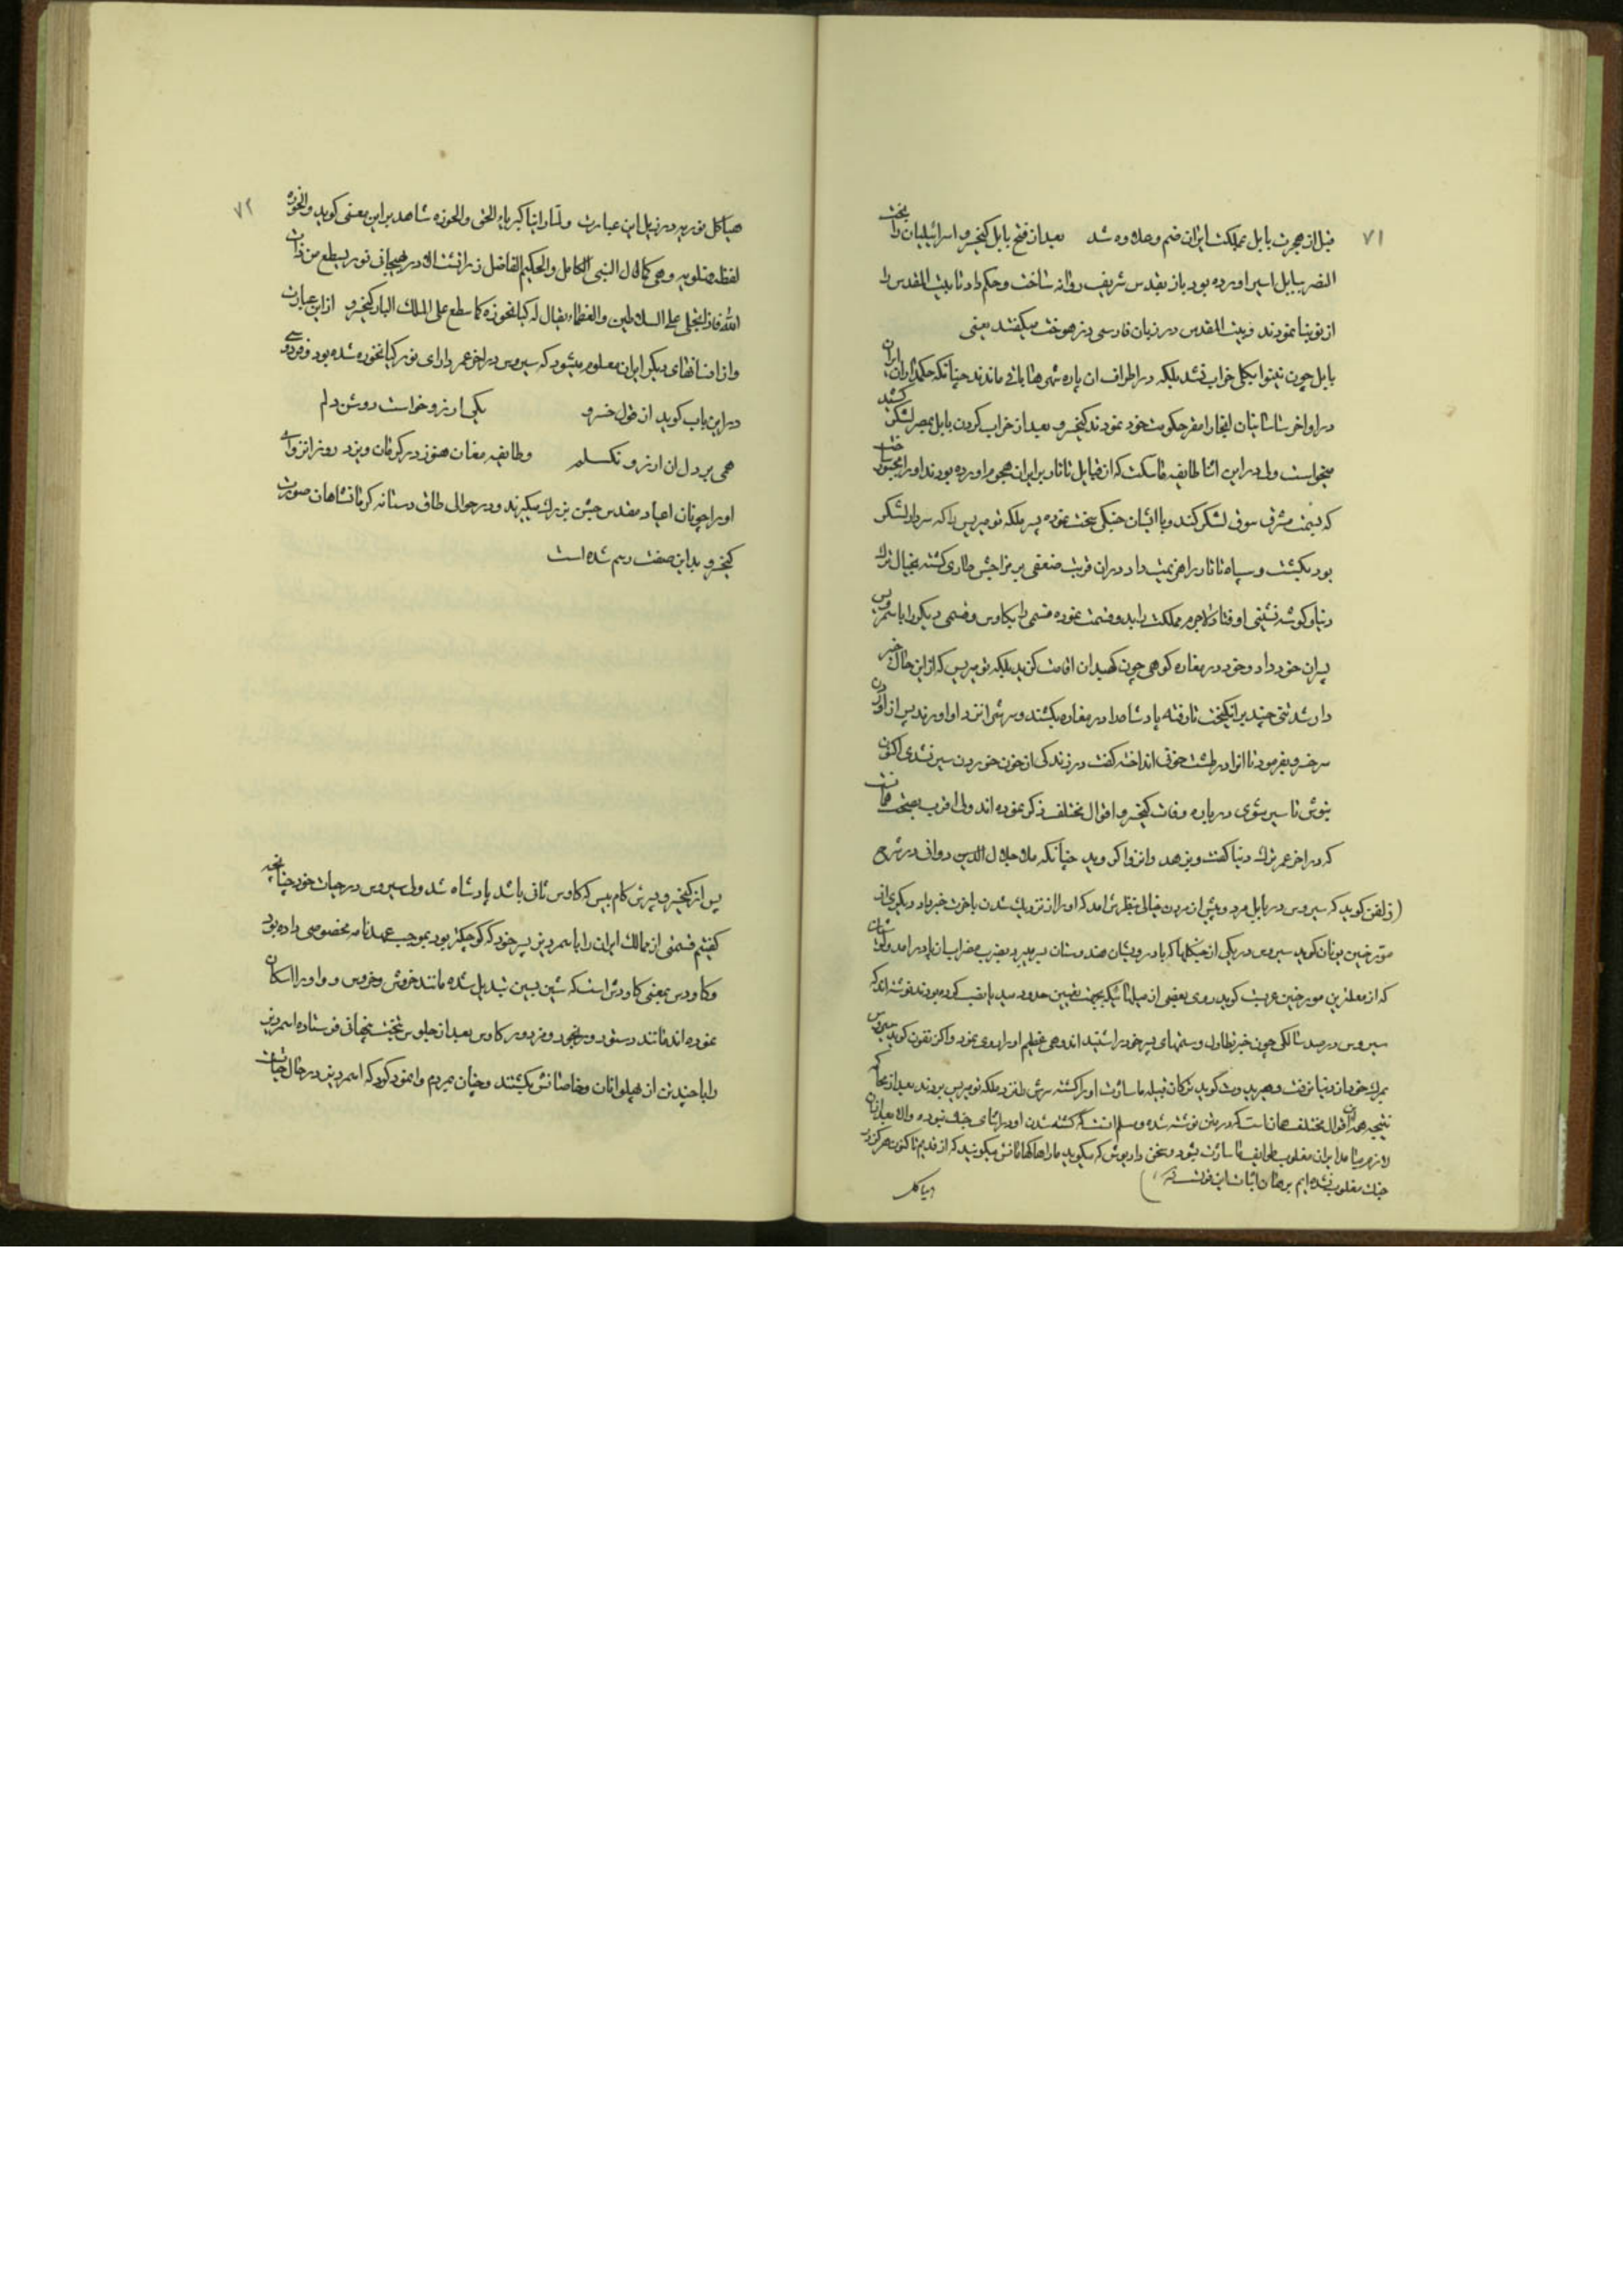 ۷۱
قبل از هجرت بابل بمملکت ایران ضم و علاوه شد بعد از فتح بابل کیخسرو اسرائیلیان را بخت
النصر ببابل اسیر اورده بود باز بقدس شریف روانه ساخت و حکم داد تا بیت المقدس را
از نو بنا نمودند و بیت المقدس در زبان فارسی دزهوخت میگفتند یعنی
بابل چون نینوا بیکل خراب نشد بلکه در اطراف ان پاره شهرها باقی ماندند چنانکه حکمداران ایران
در اواخر ساسانیان انجا را مقر حکومت خود نمودند کیخسرو بعد از خراب کردن بابل بمصر لشکر کشید
میخواست ولی در این اثنا طایفه ماسکت که از قبایل تاتار بر ایران هجوم اورده بودند او را مجبور ساخت
که بسمت مشرق سوق لشکر کند و با ایشان جنگی سخت نموده پسر ملکه تومیریس را که سردار لشکر
بود بکشت و سپاه تاتار را هزیمت داد در ان قربت ضعفی بر مزاجش طاری گشته بخیال ترک
دنیا و گوشه نشینی اوفتاد لاجرم مملکت را بدو قسمت نموده قسمی را بکاوس و قسمی دیگر را باسمردیس
پسران خود داد و خود در مغاره کوهی چون کهبدان اقامت گزید ملکه تومیریس که از این حال خبر
دار شد تنی چند برانگیخت تا رفته پادشاه را در مغاره بکشتند و سرش را نزد او اورند پس از اوردن
سر خسرو بفرمود تا انرا در طشت خونی انداخته گفت در زندگی از خون خوردن سیر نشدی اکنون
بنوش تا سیر شوی درباره وفات کیخسرو اقوال مختلف ذکر نموده اند ولی اقرب بصحت انست
که در اخر عمر ترک دنیا گفت و بزهد و انزوا گروید چنانکه ملا جلال الدین دوانی در شرح
(زلفن گوید که سیروس در بابل مرد و پیش از مردن خیالی بنظرش امد که او را از نزدیک شدن باخرت خبر داد دیگری از
مورخین یونان گوید سیروس در یکی از جنگها که با درویشان هندوستان
که از معتبرین مورخین عرب گوید روی بعضی از میلها که بجهت تعیین حدود سبد یا نصب کرده بودند نوشته اند که
سیروس در صد سالگی چون خبر تطاول و ستمهای پسر خود را شنید اندوهی عظیم او را روی نمود و اکزنفون گوید سیروس
بمرگ خود از دنیا برفت و هریدوت گوید ترکان قبیله ماساژت او را کشته سرش را نزد ملکه تومیریس بردند بعد از محاکمه
نتیجه همه این اقوال مختلف همان است که در متن نوشته شده و مسلم است که کشته شدن او در اثنای جنک نبوده والا بعد از ان
لازم میامد ایران مغلوب طوایف ماساژت بشود و سخن داریوش که میگوید ما را هاکهامانش میگویند که از قدیم تاکنون هرگز در
جنک مغلوب نشده ایم برهان اثبات این قولست)
هیاکل
۷۲
هیاکل نوریه در ذیل این عبارت ولقد راینا کبریاء الحق والحوزه شاهد بر این معنی گوید والحوزه
لفظه فهلویه وهی کما قال النبی الکامل والحکیم الفاضل زرادشت الاذربیجانی نور یسطع من ذات
الله فاذا تجلی علی السلاطین والعظماء یقال له کیانخوزه کما سطع علی الملک البار کیخسرو از این عبارت
و از افسانهای دیگر ایران معلوم میشود که سیروس در اخر عمر دارای نور کیانخوره شده بود فردوسی
در این باب گوید از قول خسرو یکی ارزو خواست روشن دلم
همی بر دل ان ارزو نگسلم و طایفه مغان هنوز در کرمان و یزد روز انزوای
او را چونان اعیاد مقدس جشن بزرک میگیرند و در حوالی طاق وستانه کرمانشاهان صورت
کیخسرو بداین صفت رسم شده است
پس از کیخسرو پسرش کام بیس که کاوس ثانی باشد پادشاه شد ولی سیروس در حیات خود چنانچه
گفتیم قسمتی از ممالک ایران را باسمردیز پسر خود که کوچکتر بود بموجب عهدنامه مخصوصی داده بود
و کاودس بمعنی کاودش است که شین بسین تبدیل شده مانند خروش و خروس و واو را اسکان
نموده اند مانند دستور و رنجور و مزدور کاوس بعد از جلوس بتخت پنهانی فرستاده اسمردیز
را با چند تن از پهلوانان و خاصانش بکشتند و چنان بمردم وانمود کرد که اسمردیز در حال حیات است